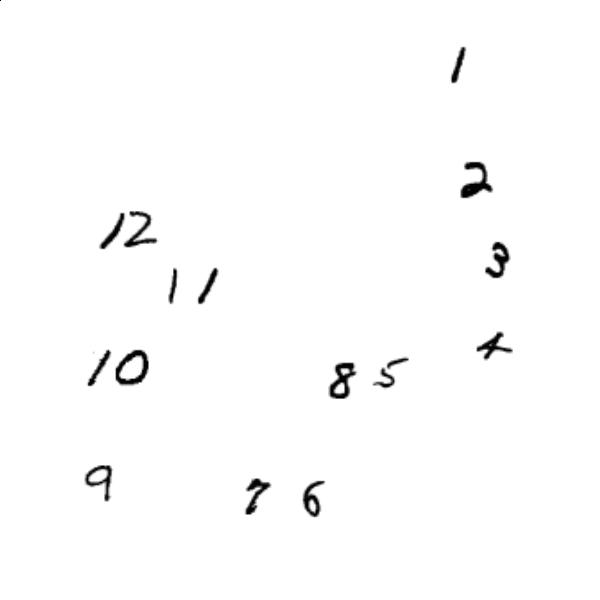 1
2
12
3
11
4
10
8 5
9
7 6